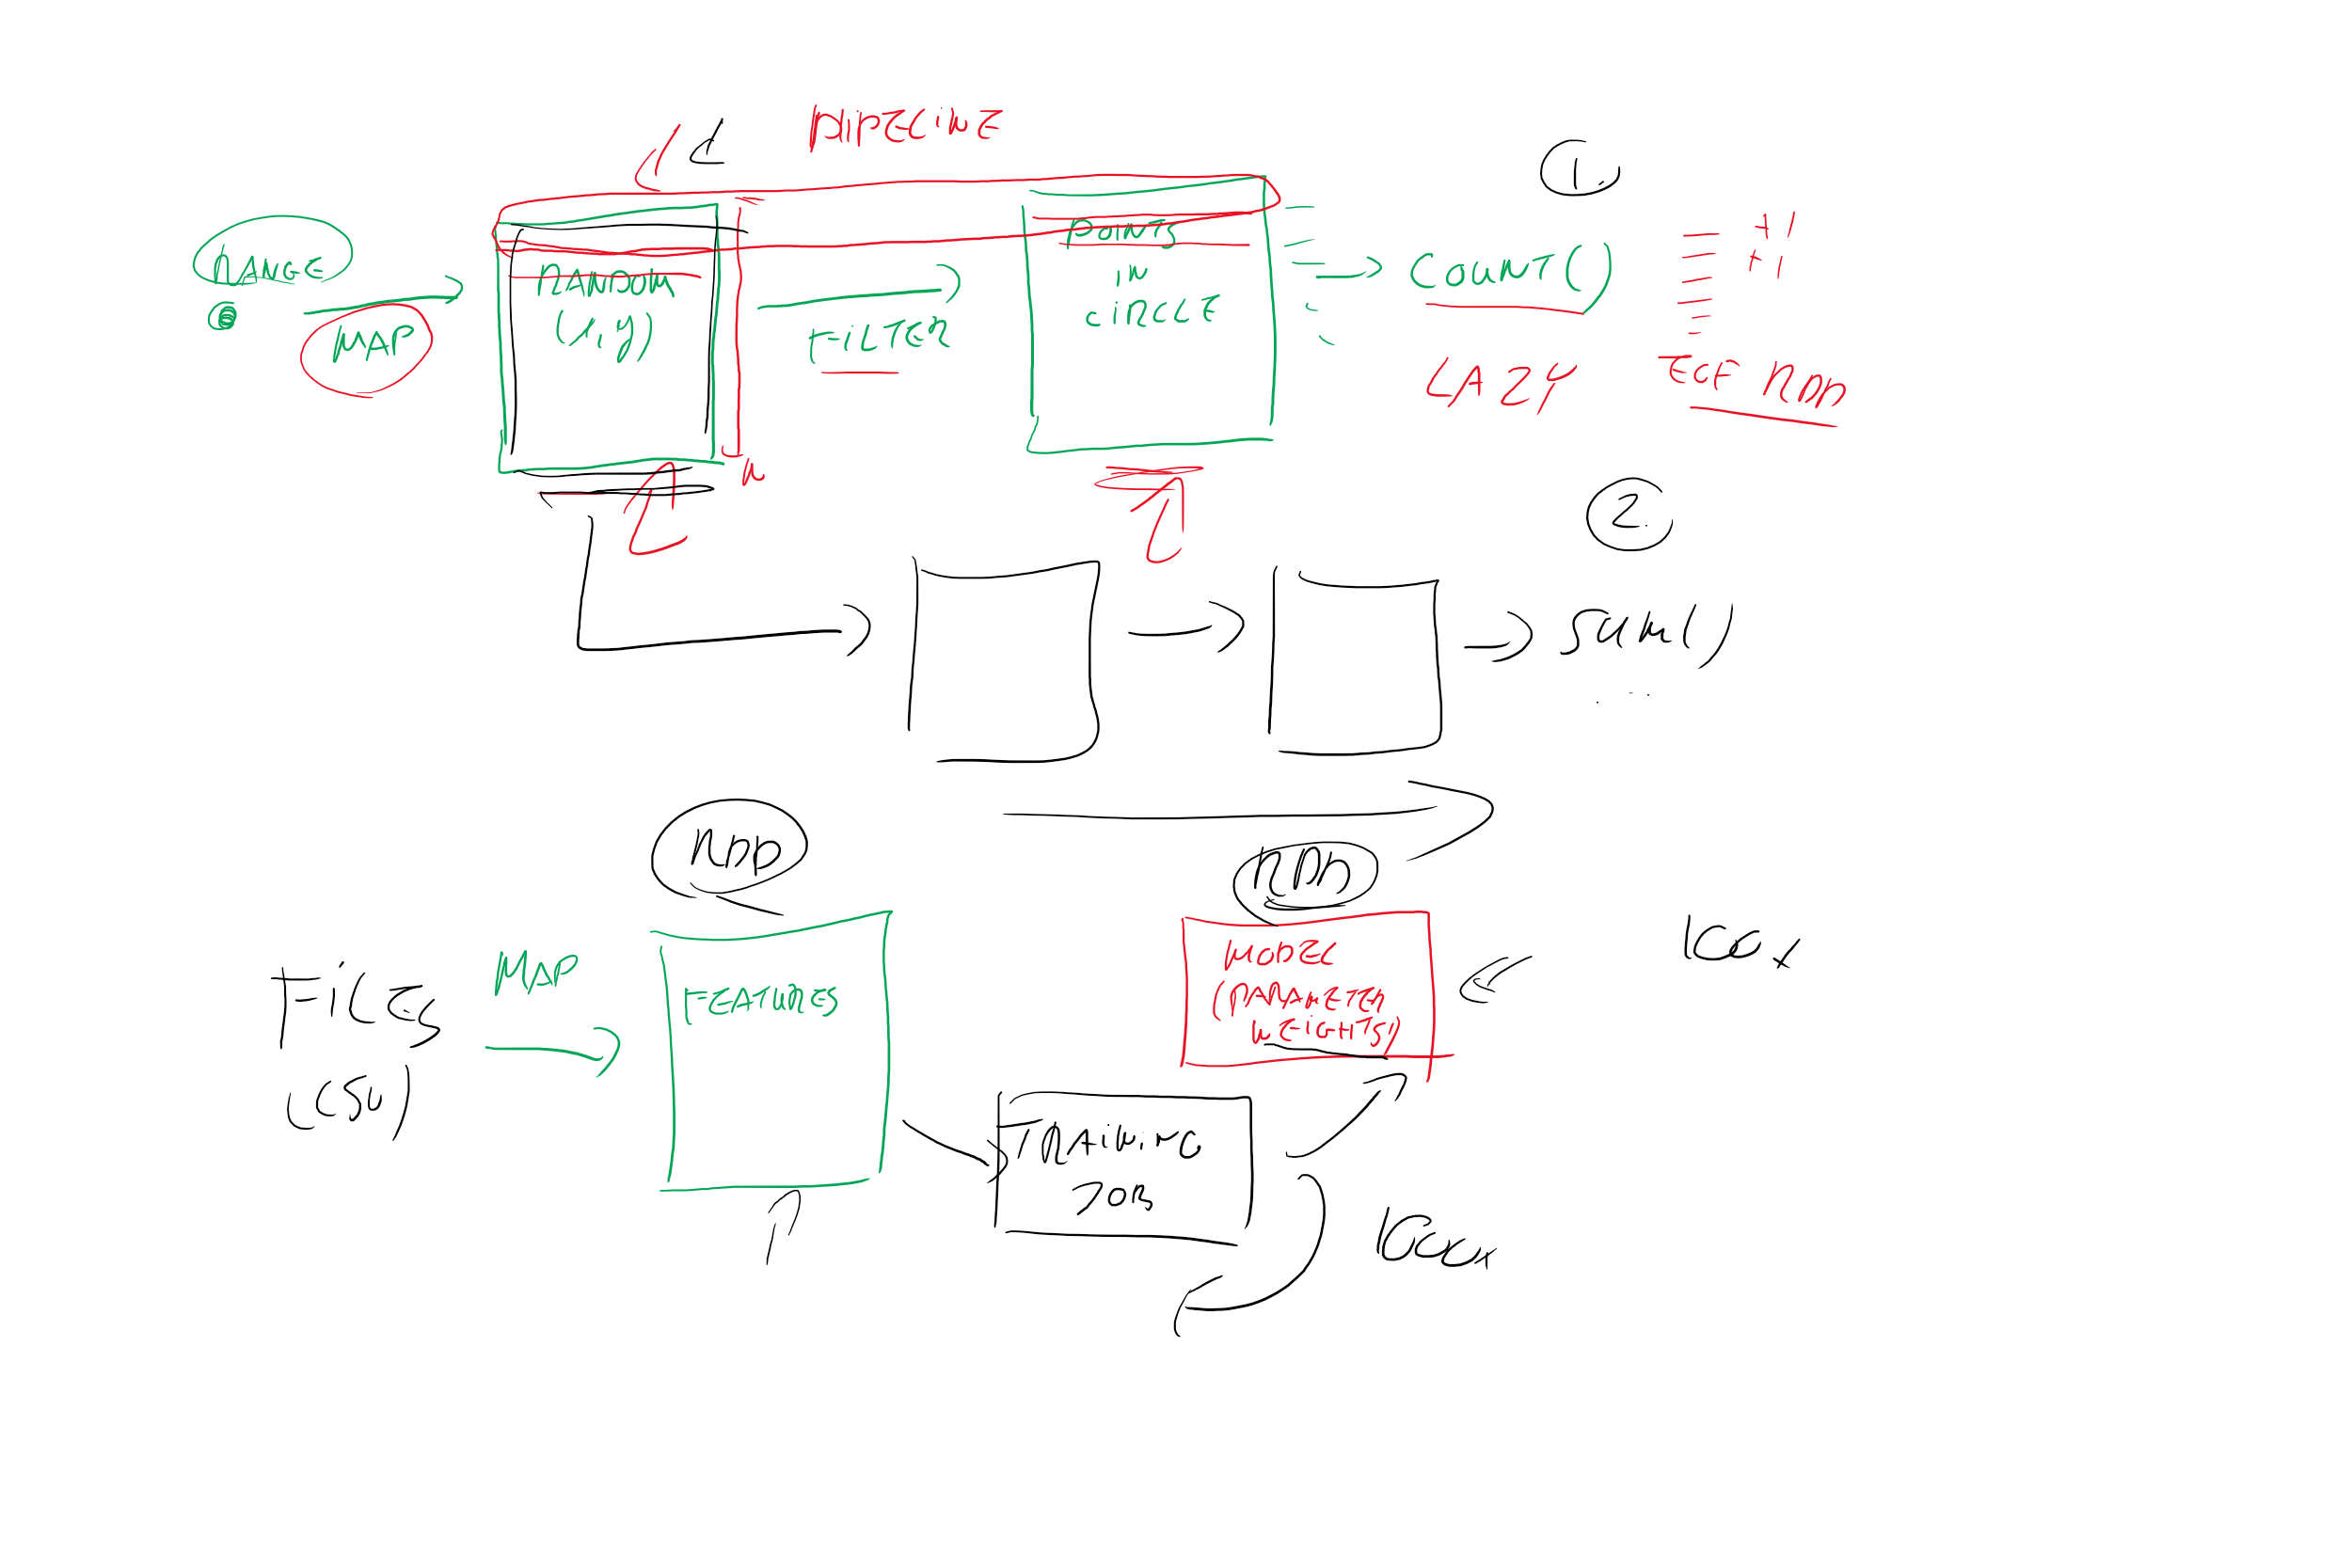 PIPELINE
1.
RANGE
MAP
RANDOM
(x,y)
FILTER
POINTS
IN
CIRCLE
COUNT()
+1
+1
LAZY
RDD
2.
SUM()
...
RDD
RDD
FILES
(CSV)
MAP
FEATURES
MODEL
(PARAMETER
WEIGHTS)
TRAINING
JOB